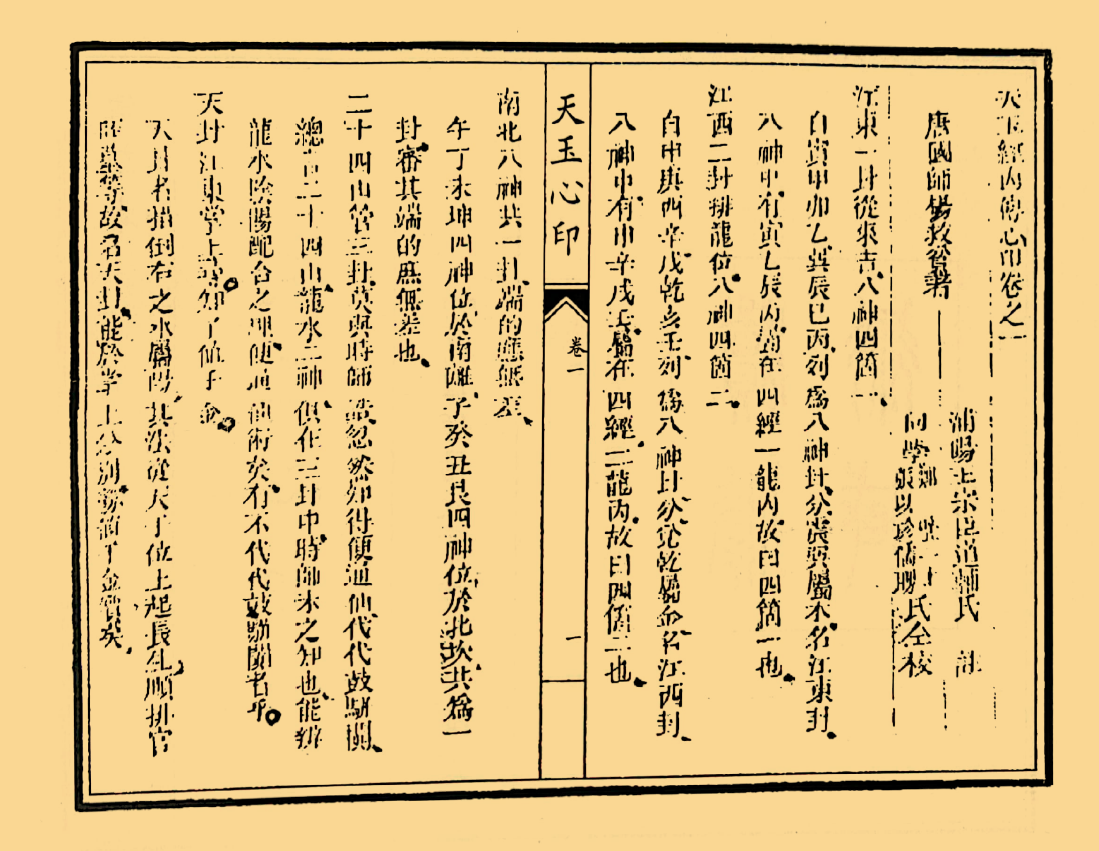 天玉經內傳心印卷之一
唐國師楊救貧著
浦陽王宗臣道輔氏 註
同學 鄭 張以 儒聯氏仝校
江東一卦從來吉八神四箇一
自寅甲卯乙巽辰巳丙列爲八神卦分震巽屬木名江東卦
八神中有寅乙辰丙屬在四經一龍內故曰四箇一也
江西二卦排龍位八神四箇二
自申庚酉辛戌乾亥壬列爲八神卦分兌乾屬金名江西卦
八神中有申辛戌壬屬在四經二龍內故曰四箇二也
天玉心印
卷一
一
南北八神共一卦端的應無差
午丁未坤四神位於南離子癸丑艮四神位於北坎共爲一
卦審其端的應無差也
二十四山管三卦莫與時師話忽然知得便通仙代代鼓駢闐
總言二十四山龍水二神俱在三卦中時師未之知也能辨
龍水陰陽配合之理便通仙術矣有不代代鼓駢闐者乎
天卦江東掌上尋知了值千金
天卦者指倒右之水屬陽其法從天丁位上起長生順排官
旺墓等故名天卦能於掌上分別 値千金寶矣